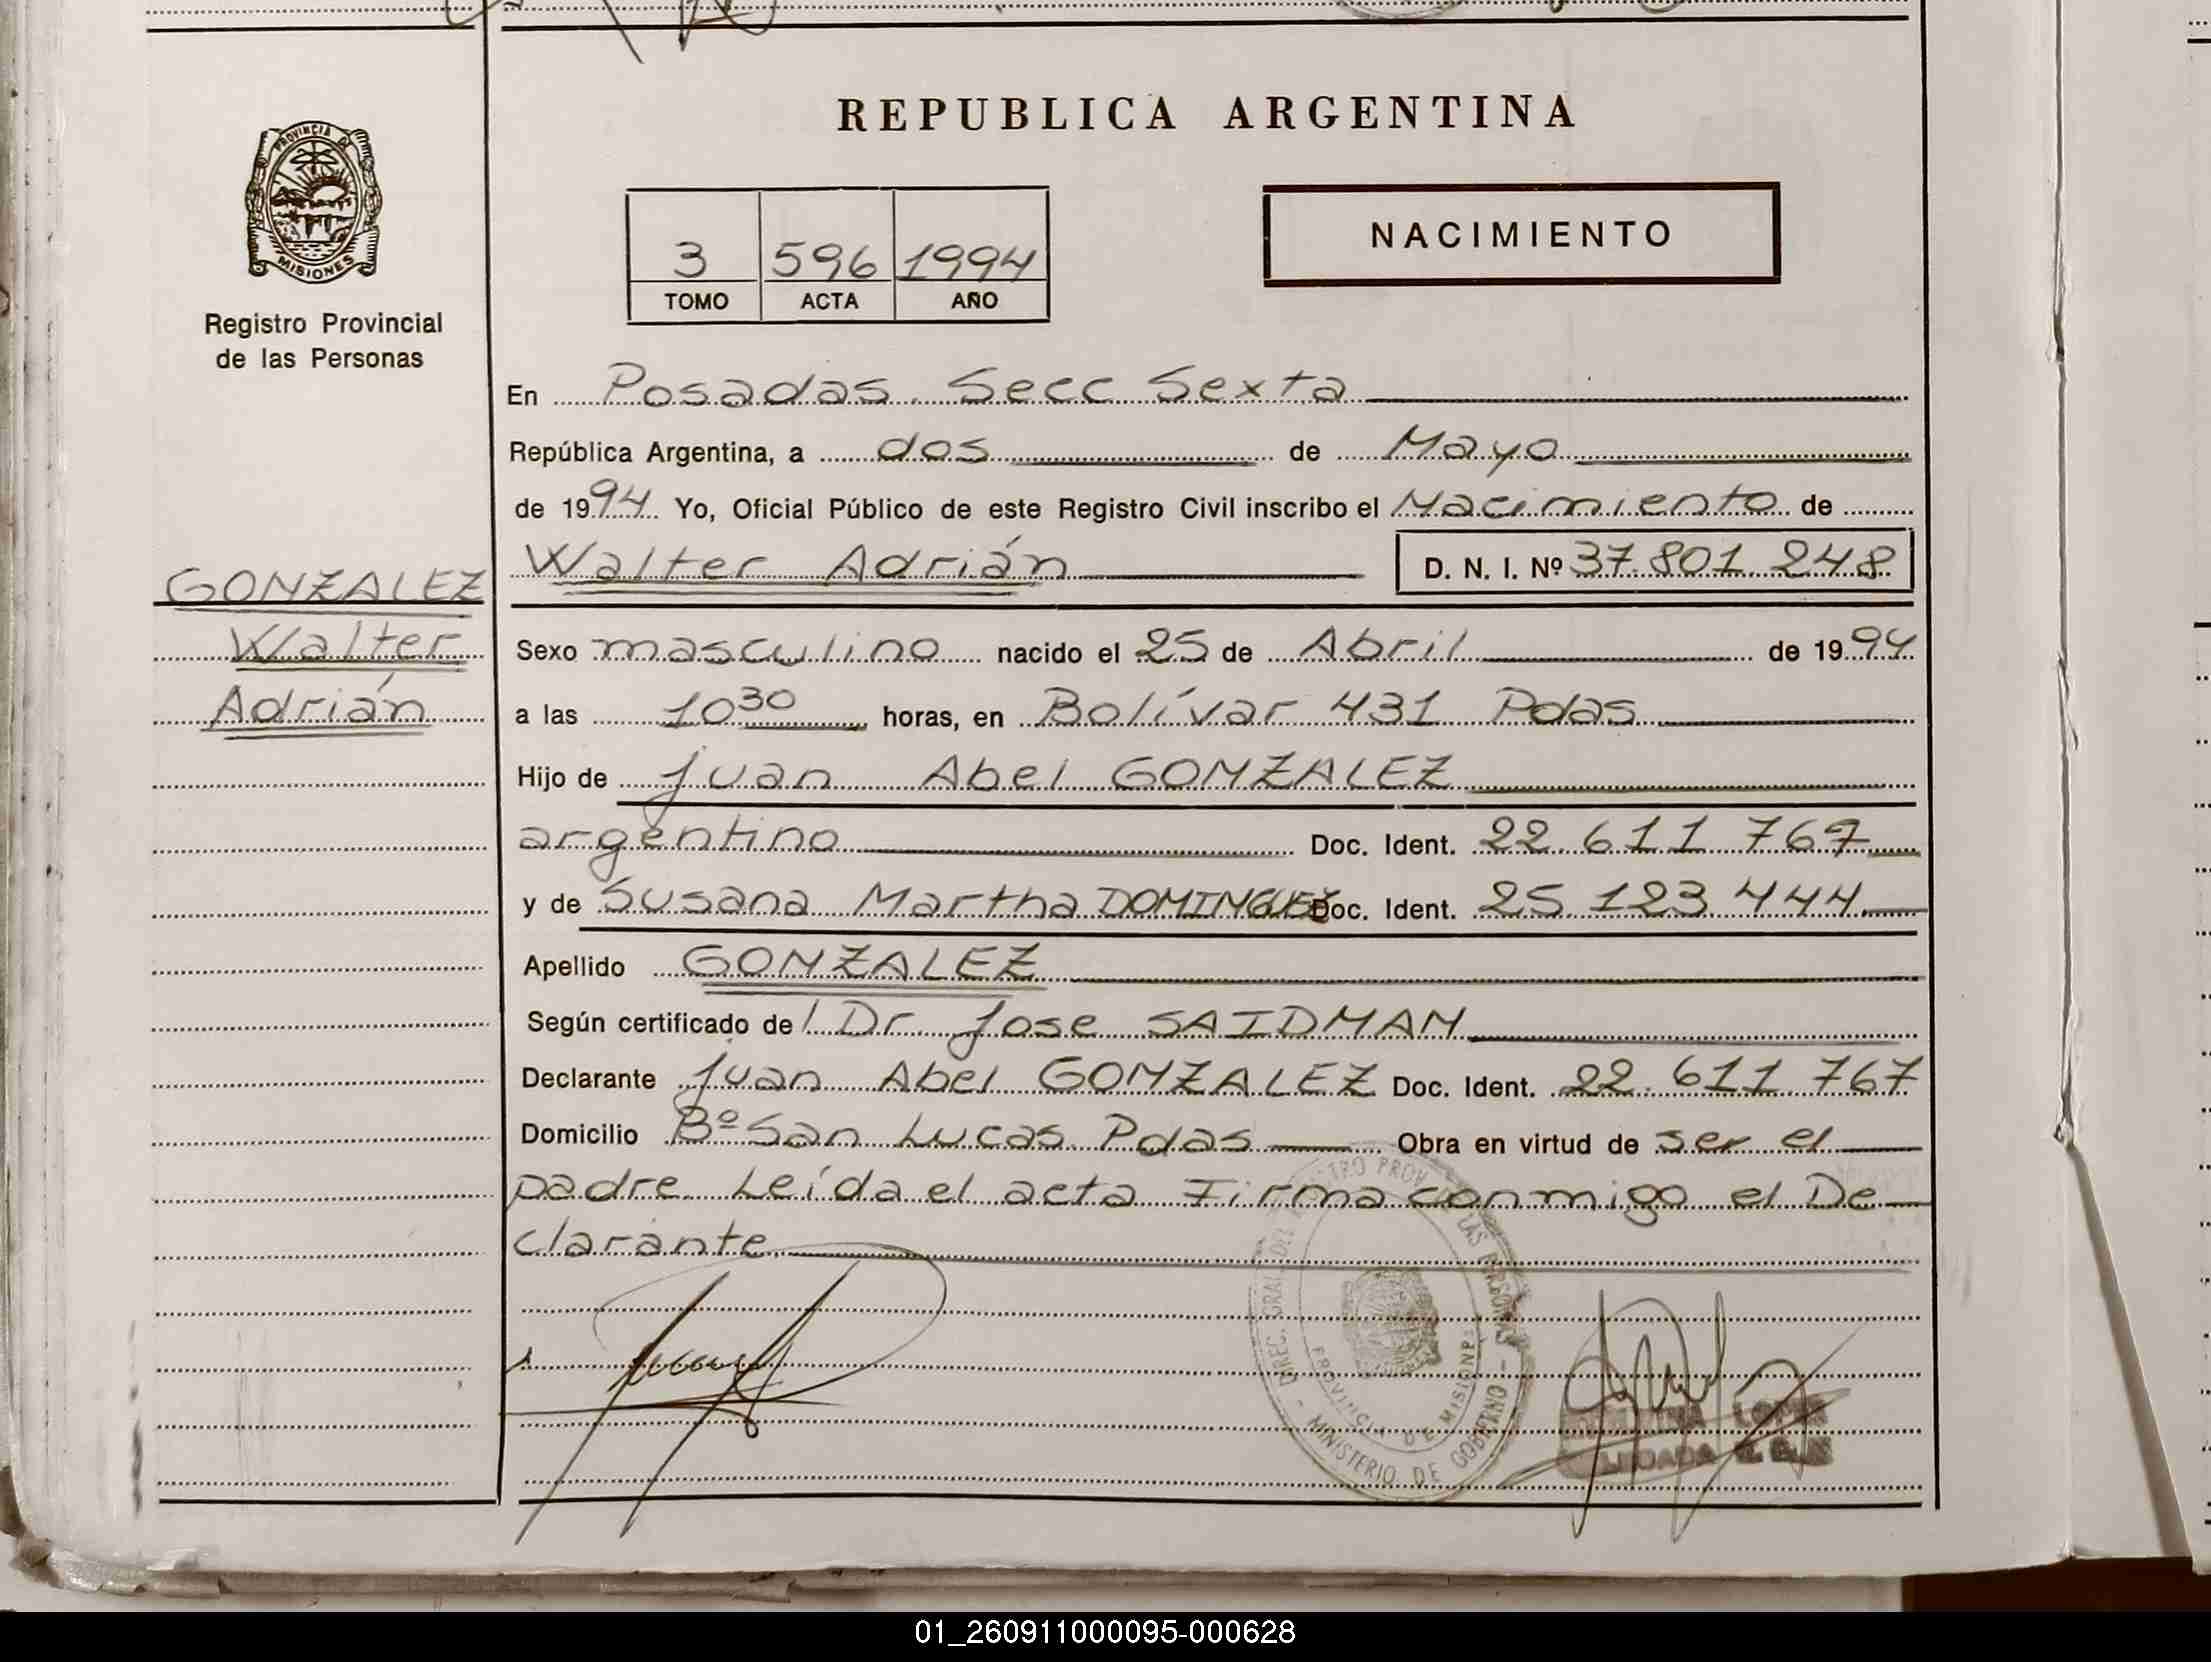 REPUBLICA ARGENTINA
PROVINCIA DE
MISIONES
Registro Provincial
de las Personas
3 596 1994
TOMO ACTA AÑO
NACIMIENTO
En Posadas. Secc Sexta
República Argentina, a dos de Mayo
de 1994 Yo, Oficial Público de este Registro Civil inscribo el Nacimiento de
Walter Adrián D. N. I. Nº 37.801.248
GONZALEZ
Walter
Adrián
Sexo masculino nacido el 25 de Abril de 1994
a las 10 30 horas, en Bolívar 431 Pdas
Hijo de Juan Abel GONZALEZ
argentino Doc. Ident. 22.611.767
y de Susana Martha DOMINGUEZ Doc. Ident. 25.123.444
Apellido GONZALEZ
Según certificado del Dr. Jose SAIDMAN
Declarante Juan Abel GONZALEZ Doc. Ident. 22.611.767
Domicilio Bº San Lucas Pdas Obra en virtud de ser el
padre Leída el acta Firma conmigo el De
clarante
DIREC. GRAL. DEL REGISTRO PROV. DE LAS PERSONAS
PROVINCIA DE MISIONES
- MINISTERIO DE GOBIERNO -
LOPEZ
01_260911000095-000628